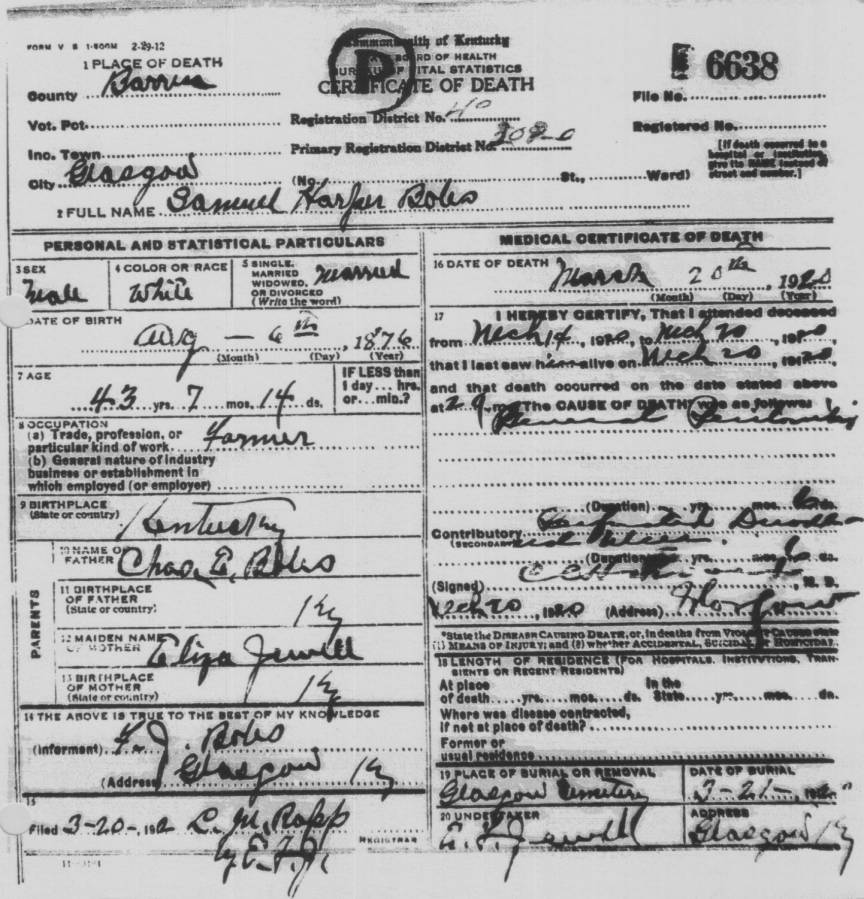 FORM V S 1-500M 2-29-12
Commonwealth of Kentucky
BOARD OF HEALTH
BUREAU OF VITAL STATISTICS
CERTIFICATE OF DEATH
P
6638
1 PLACE OF DEATH
County Barren
File No.
Vot. Pct.
Registration District No. 40
Registered No.
Inc. Town
Primary Registration District No. 2080
[If death occurred in a hospital or institution, give its NAME instead of street and number.]
City Glasgow (No. St., Ward)
2 FULL NAME Samuel Harper Boles
PERSONAL AND STATISTICAL PARTICULARS
3 SEX
Male
4 COLOR OR RACE
White
5 SINGLE, MARRIED WIDOWED, OR DIVORCED (Write the word)
Married
DATE OF BIRTH
Aug — 6th, 1876
(Month) (Day) (Year)
7 AGE
43 yrs. 7 mos. 14 ds.
IF LESS than 1 day... hrs. or... min.?
8 OCCUPATION
(a) Trade, profession, or particular kind of work Farmer
(b) General nature of industry business or establishment in which employed (or employer)
9 BIRTHPLACE
(State or country) Kentucky
PARENTS
10 NAME OF FATHER Chas. E. Boles
11 BIRTHPLACE OF FATHER
(State or country) Ky
12 MAIDEN NAME OF MOTHER Eliza Jewell
13 BIRTHPLACE OF MOTHER
(State or country) Ky
14 THE ABOVE IS TRUE TO THE BEST OF MY KNOWLEDGE
(Informant) J. Boles
(Address) Glasgow Ky
15
Filed 3-20-, 192 L. M. Ropp
REGISTRAR
by E. F. J.
MEDICAL CERTIFICATE OF DEATH
16 DATE OF DEATH
March 20th, 1920
(Month) (Day) (Year)
17 I HEREBY CERTIFY, That I attended deceased
from Mch 14, 1920, to Mch 20, 1920
that I last saw him alive on Mch 20, 1920
and that death occurred on the date stated above
at 2 m. The CAUSE OF DEATH was as follows:
General Peritonitis
(Duration) yrs. mos. 6 ds.
Contributory
(SECONDARY)
(Duration) yrs. mos. 6 ds.
(Signed) M. D.
Mch 20, 1920 (Address) Glasgow
*State the DISEASE CAUSING DEATH, or, in deaths from VIOLENT CAUSES state
(1) MEANS OF INJURY; and (2) whether ACCIDENTAL, SUICIDAL or HOMICIDAL.
18 LENGTH OF RESIDENCE (FOR HOSPITALS, INSTITUTIONS, TRANSIENTS OR RECENT RESIDENTS)
At place of death yrs. mos. ds. In the State yrs. mos. ds.
Where was disease contracted, if not at place of death?
Former or usual residence
19 PLACE OF BURIAL OR REMOVAL
Glasgow Cemetery
DATE OF BURIAL
3-21-, 192
20 UNDERTAKER
E. F. Jewell
ADDRESS
Glasgow Ky